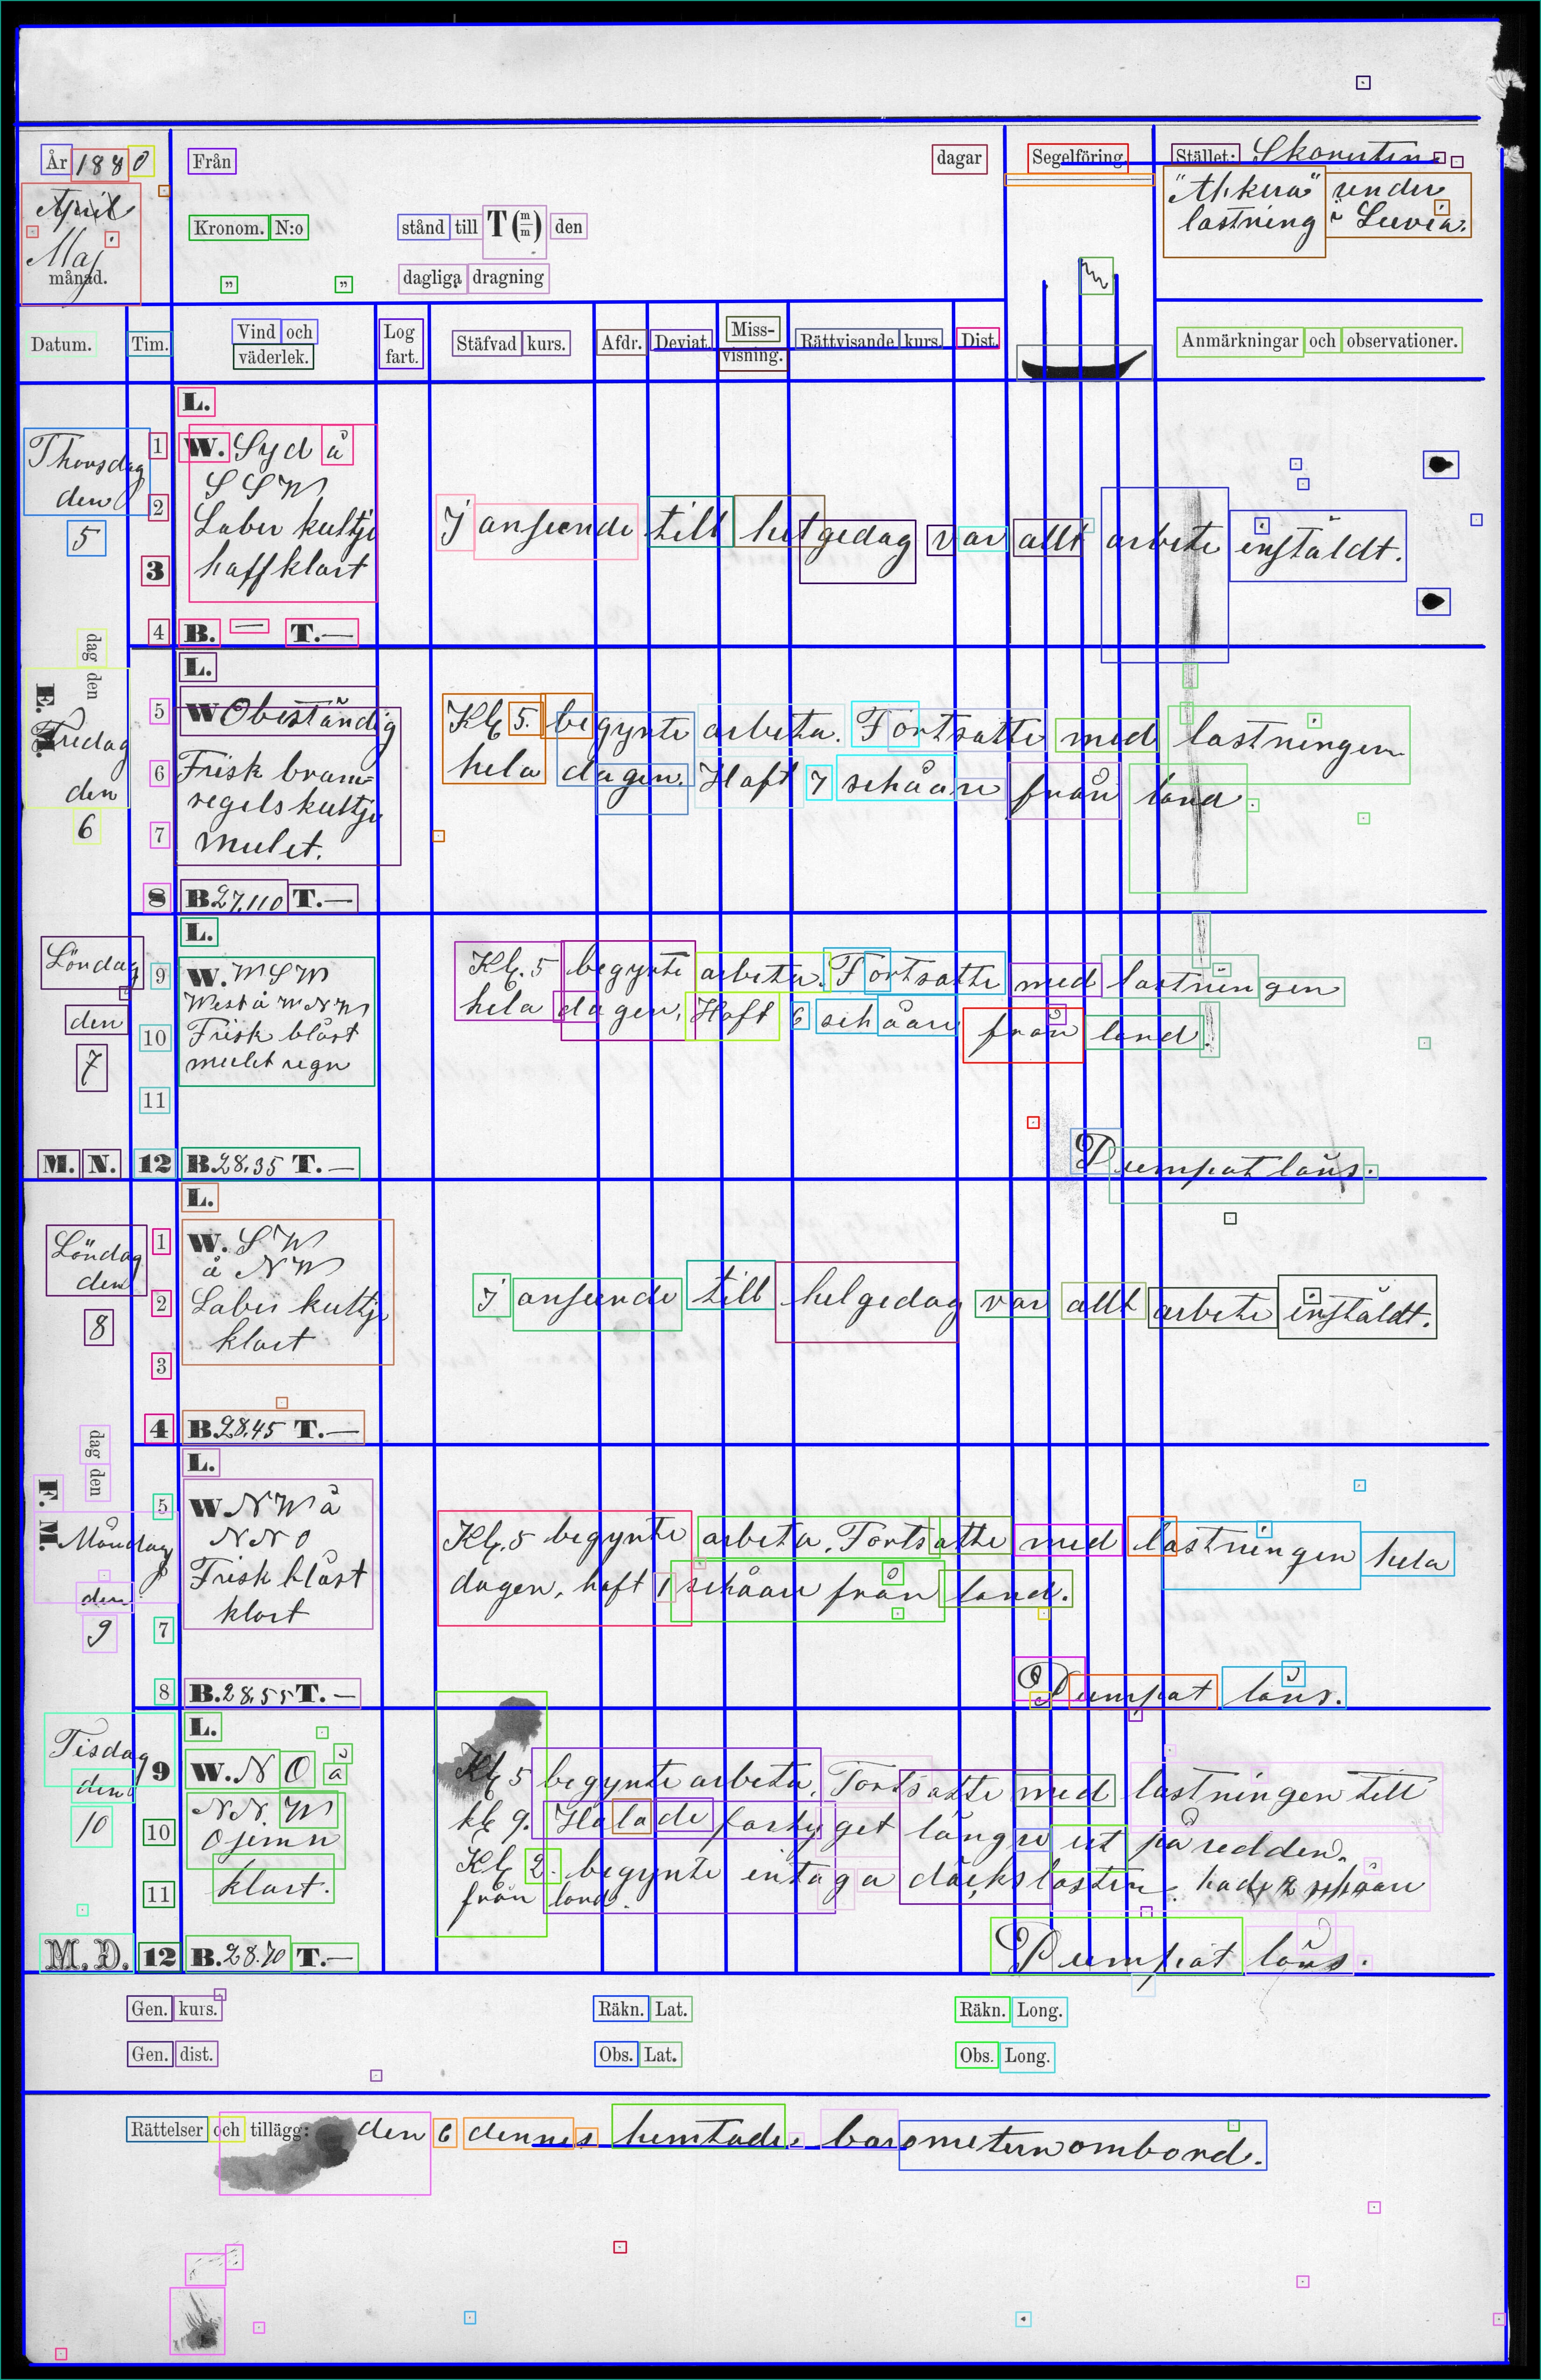 År 1880
April
Maj
månad.
Från
dagar
Kronom. N:o
stånd till T (m/m) den
„ „
dagliga dragning
Segelföring.
Stället: Skonerten
"Ahkera" under
lastning i Luvia.
Datum.
Tim.
Vind och
väderlek.
Log
fart.
Stäfvad kurs.
Afdr.
Deviat.
Miss-
visning.
Rättvisande kurs.
Dist.
Anmärkningar och observationer.
Thorsdag
den
5
dag den
E. M.
1
2
3
4
L.
W. Syd å
S S W
Laber kultje
haff klart
B. — T. —
I anseende till helgedag var allt arbete instäldt.
Fredag
den
6
5
6
7
8
L.
W Obeständig
Frisk bram-
segels kultje
mulet.
B. 27,110 T. —
Kl. 5. begynte arbeta. Fortsatte med lastningen
hela dagen. Haft 7 schåare från land.
Löndag
den
7
M. N.
9
10
11
12
L.
W. W S W
West å W N W
Frisk blåst
mulet regn
B. 28,35 T. —
Kl. 5 begynte arbeta. Fortsatte med lastningen
hela dagen, Haft 6 schåare från land.
Pumpat läns.
Söndag
den
8
dag den
F. M.
1
2
3
4
L.
W. S W
å N W
Laber kultje
klart
B. 28,45 T. —
I anseende till helgedag var allt arbete instäldt.
Måndag
den
9
5
7
8
L.
W N W å
N N O
Frisk blåst
klart
B. 28,55 T. —
Kl. 5 begynte arbeta. Fortsatte med lastningen hela
dagen, haft 1 schåare från land.
Pumpat läns.
Tisdag
den
10
M. D.
9
10
11
12
L.
W. N O å
N N W
Ojemn
klart.
B. 28.70 T. —
Kl 5 begynte arbeta. Fortsatte med lastningen till
kl 9. Halade fartyget längre ut på redden.
Kl 2. begynte intaga däckslasten. hade 2 schåare
från land.
Pumpat läns.
Gen. kurs.
Räkn. Lat.
Räkn. Long.
Gen. dist.
Obs. Lat.
Obs. Long.
Rättelser och tillägg: den 6 dennes hemtades barometern ombord.